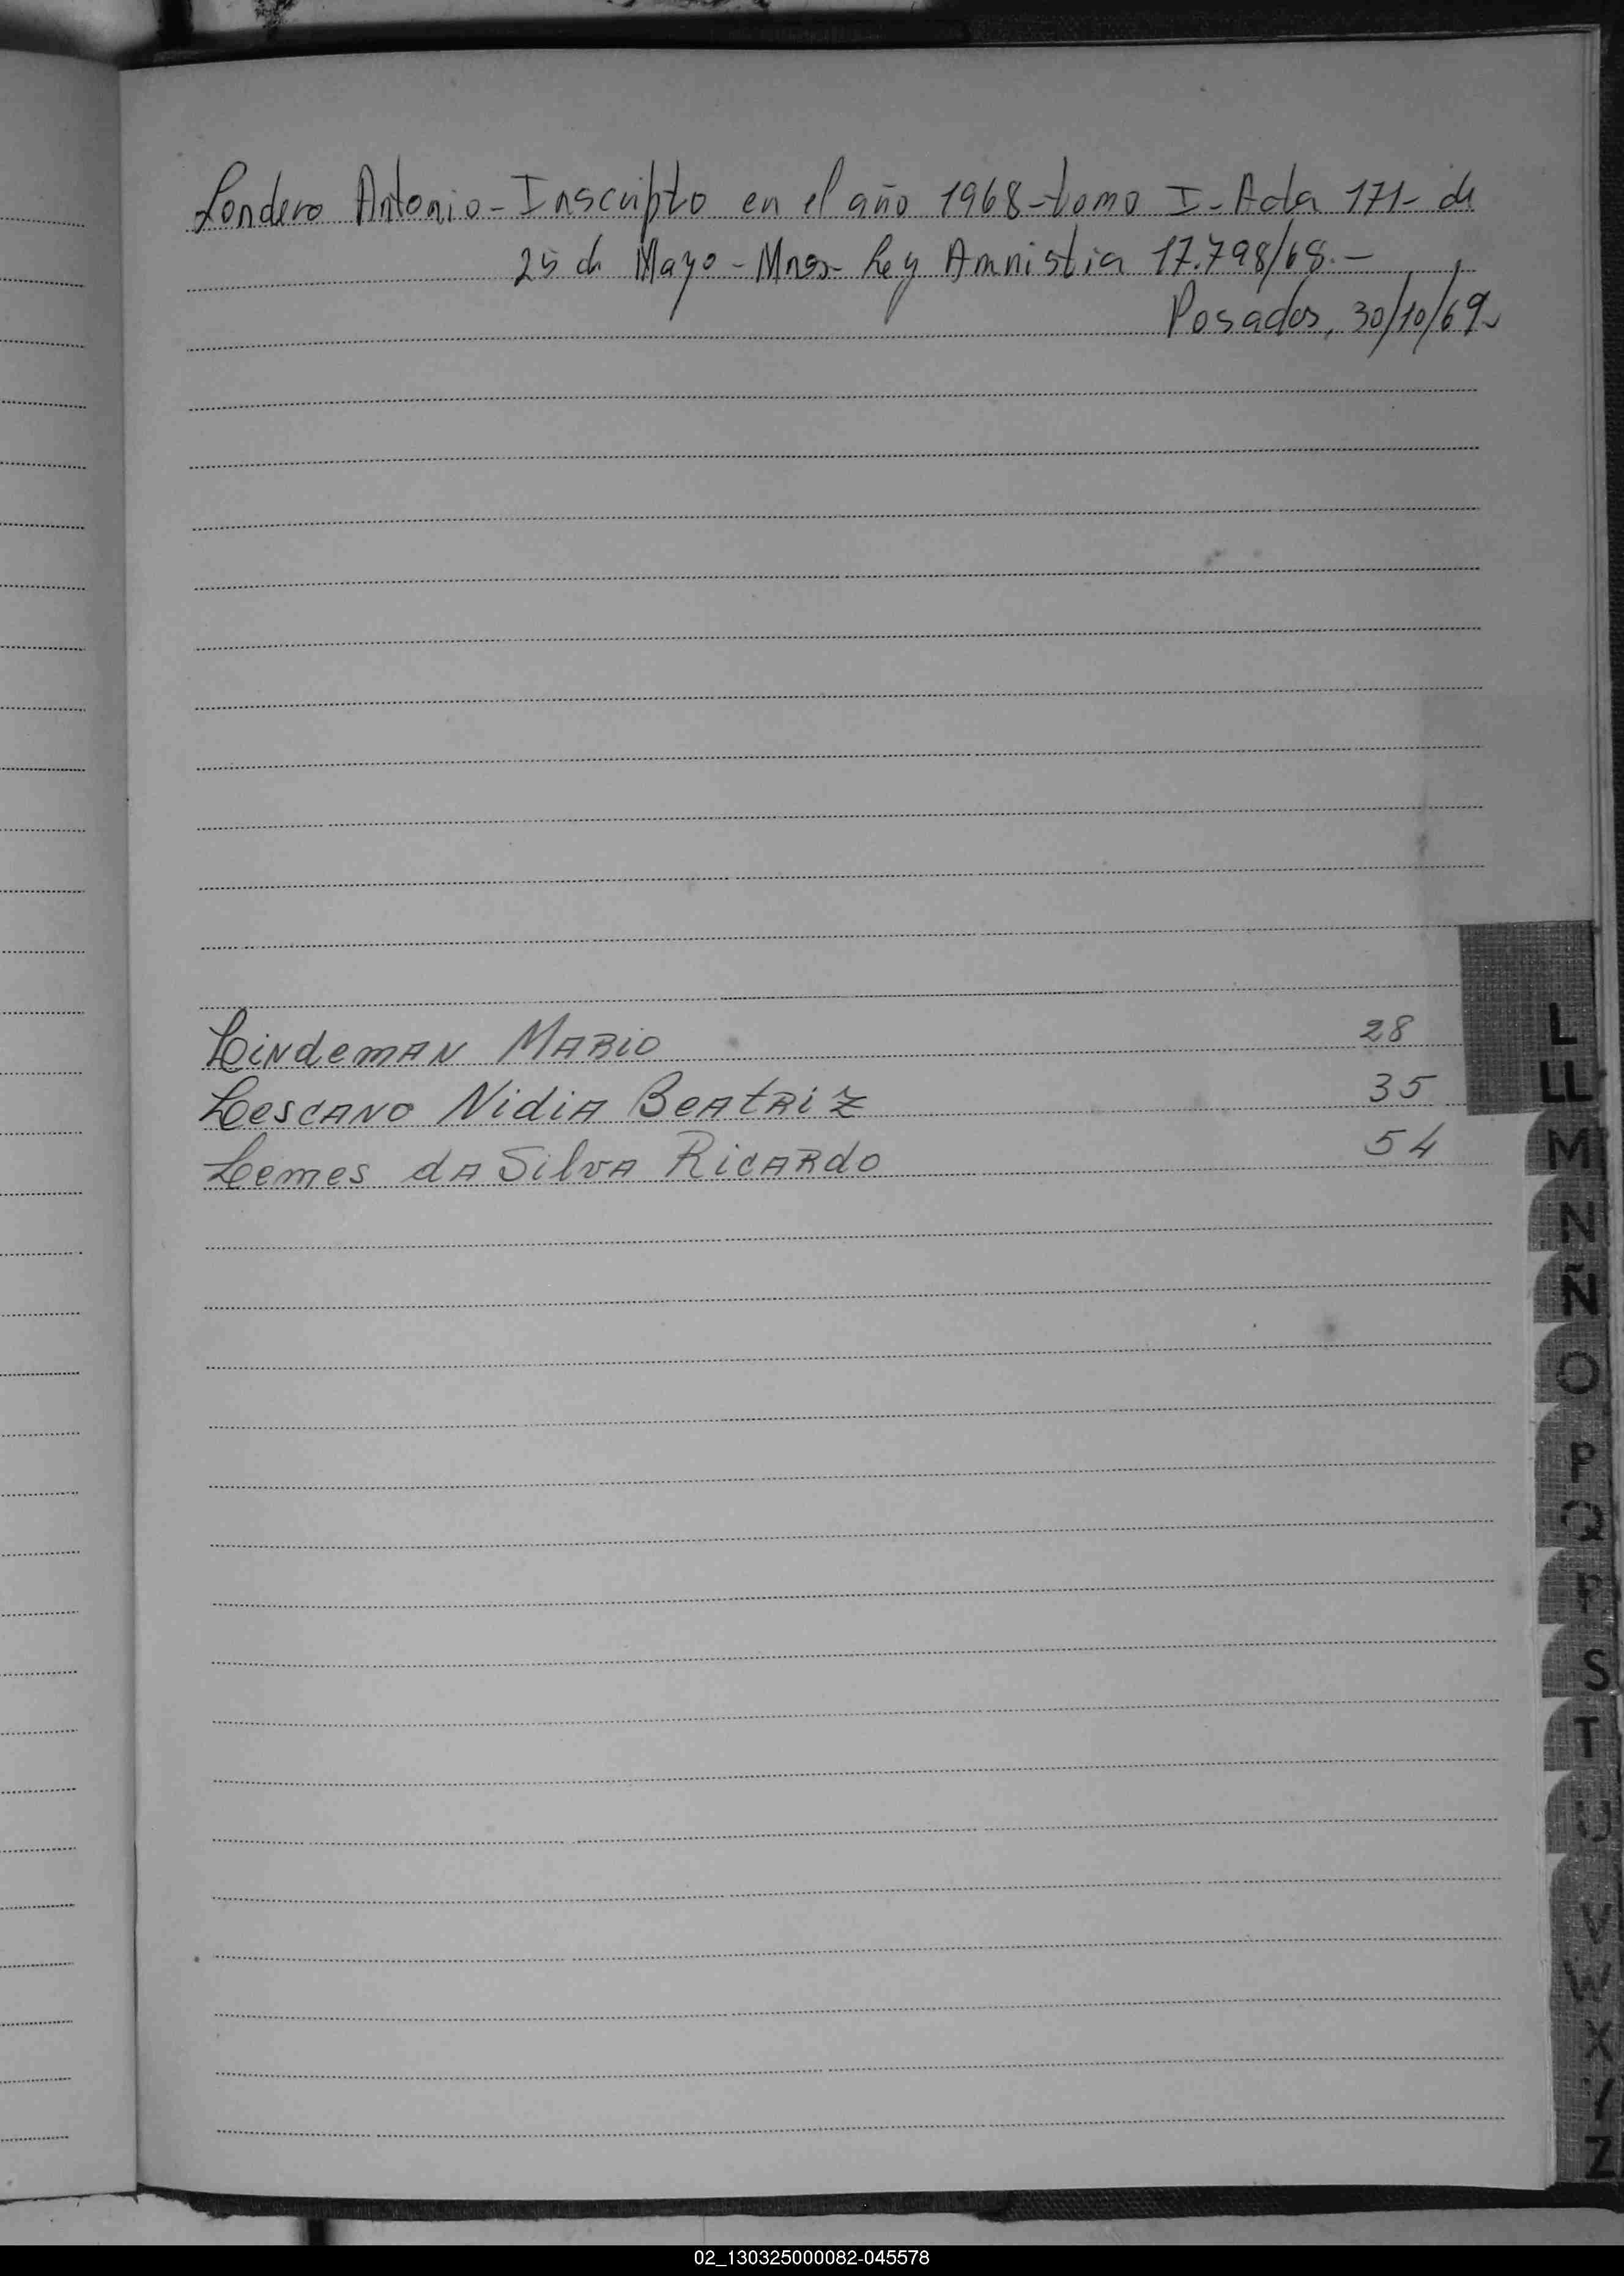 Londero Antonio - Inscripto en el año 1968 - tomo I - Acta 171 - de
25 de Mayo - Mnes - Ley Amnistia 17.798/68.-
Posadas, 30/10/69
Lindeman Mario 28
Lescano Nidia Beatriz 35
Lemes da Silva Ricardo 54
L
LL
M
N
Ñ
O
P
Q
R
S
T
U
V
W
X
Y
Z
02_130325000082-045578